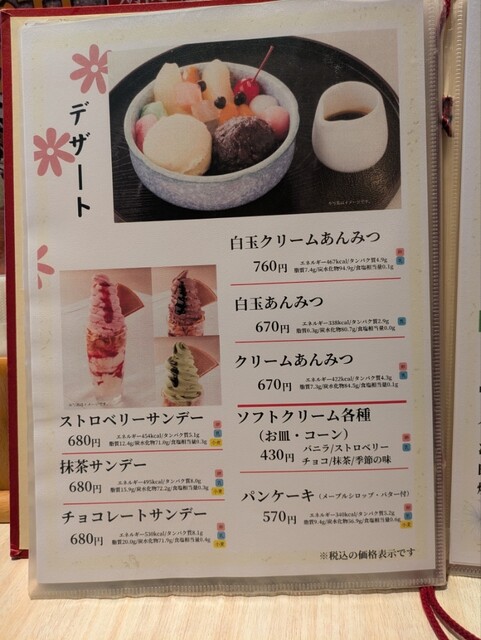 デザート
白玉クリームあんみつ
760円
エネルギー467kcal/タンパク質4.9g
脂質7.4g/炭水化物94.9g/食塩相当量0.1g
白玉あんみつ
670円
エネルギー338kcal/タンパク質3.9g
脂質0.3g/炭水化物80.7g/食塩相当量0.0g
クリームあんみつ
670円
エネルギー422kcal/タンパク質4.3g
脂質7.3g/炭水化物84.5g/食塩相当量0.1g
ソフトクリーム各種
(お皿・コーン)
430円 バニラ/ストロベリー
チョコ/抹茶/季節の味
パンケーキ(メープルシロップ・バター付)
570円
エネルギー340kcal/タンパク質5.2g
ストロベリーサンデー
680円
エネルギー454kcal/タンパク質5.1g
脂質12.4g/炭水化物71.0g/食塩相当量0.3g
抹茶サンデー
680円
エネルギー495kcal/タンパク質8.0g
脂質15.9g/炭水化物72.2g/食塩相当量0.3g
チョコレートサンデー
680円
エネルギー530kcal/タンパク質8.1g
脂質20.0g/炭水化物71.9g/食塩相当量0.4g
※税込の価格表示です